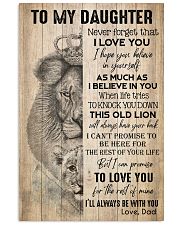 TO MY DAUGHTER
Never forget that
I LOVE YOU
I hope you believe
in yourself
AS MUCH AS
I BELIEVE IN YOU
When life tries
TO KNOCK YOU DOWN
THIS OLD LION
will always have your back
I CAN'T PROMISE TO
BE HERE FOR
THE REST OF YOUR LIFE
But I can promise
TO LOVE YOU
for the rest of mine
I'LL ALWAYS BE WITH YOU
Love, Dad